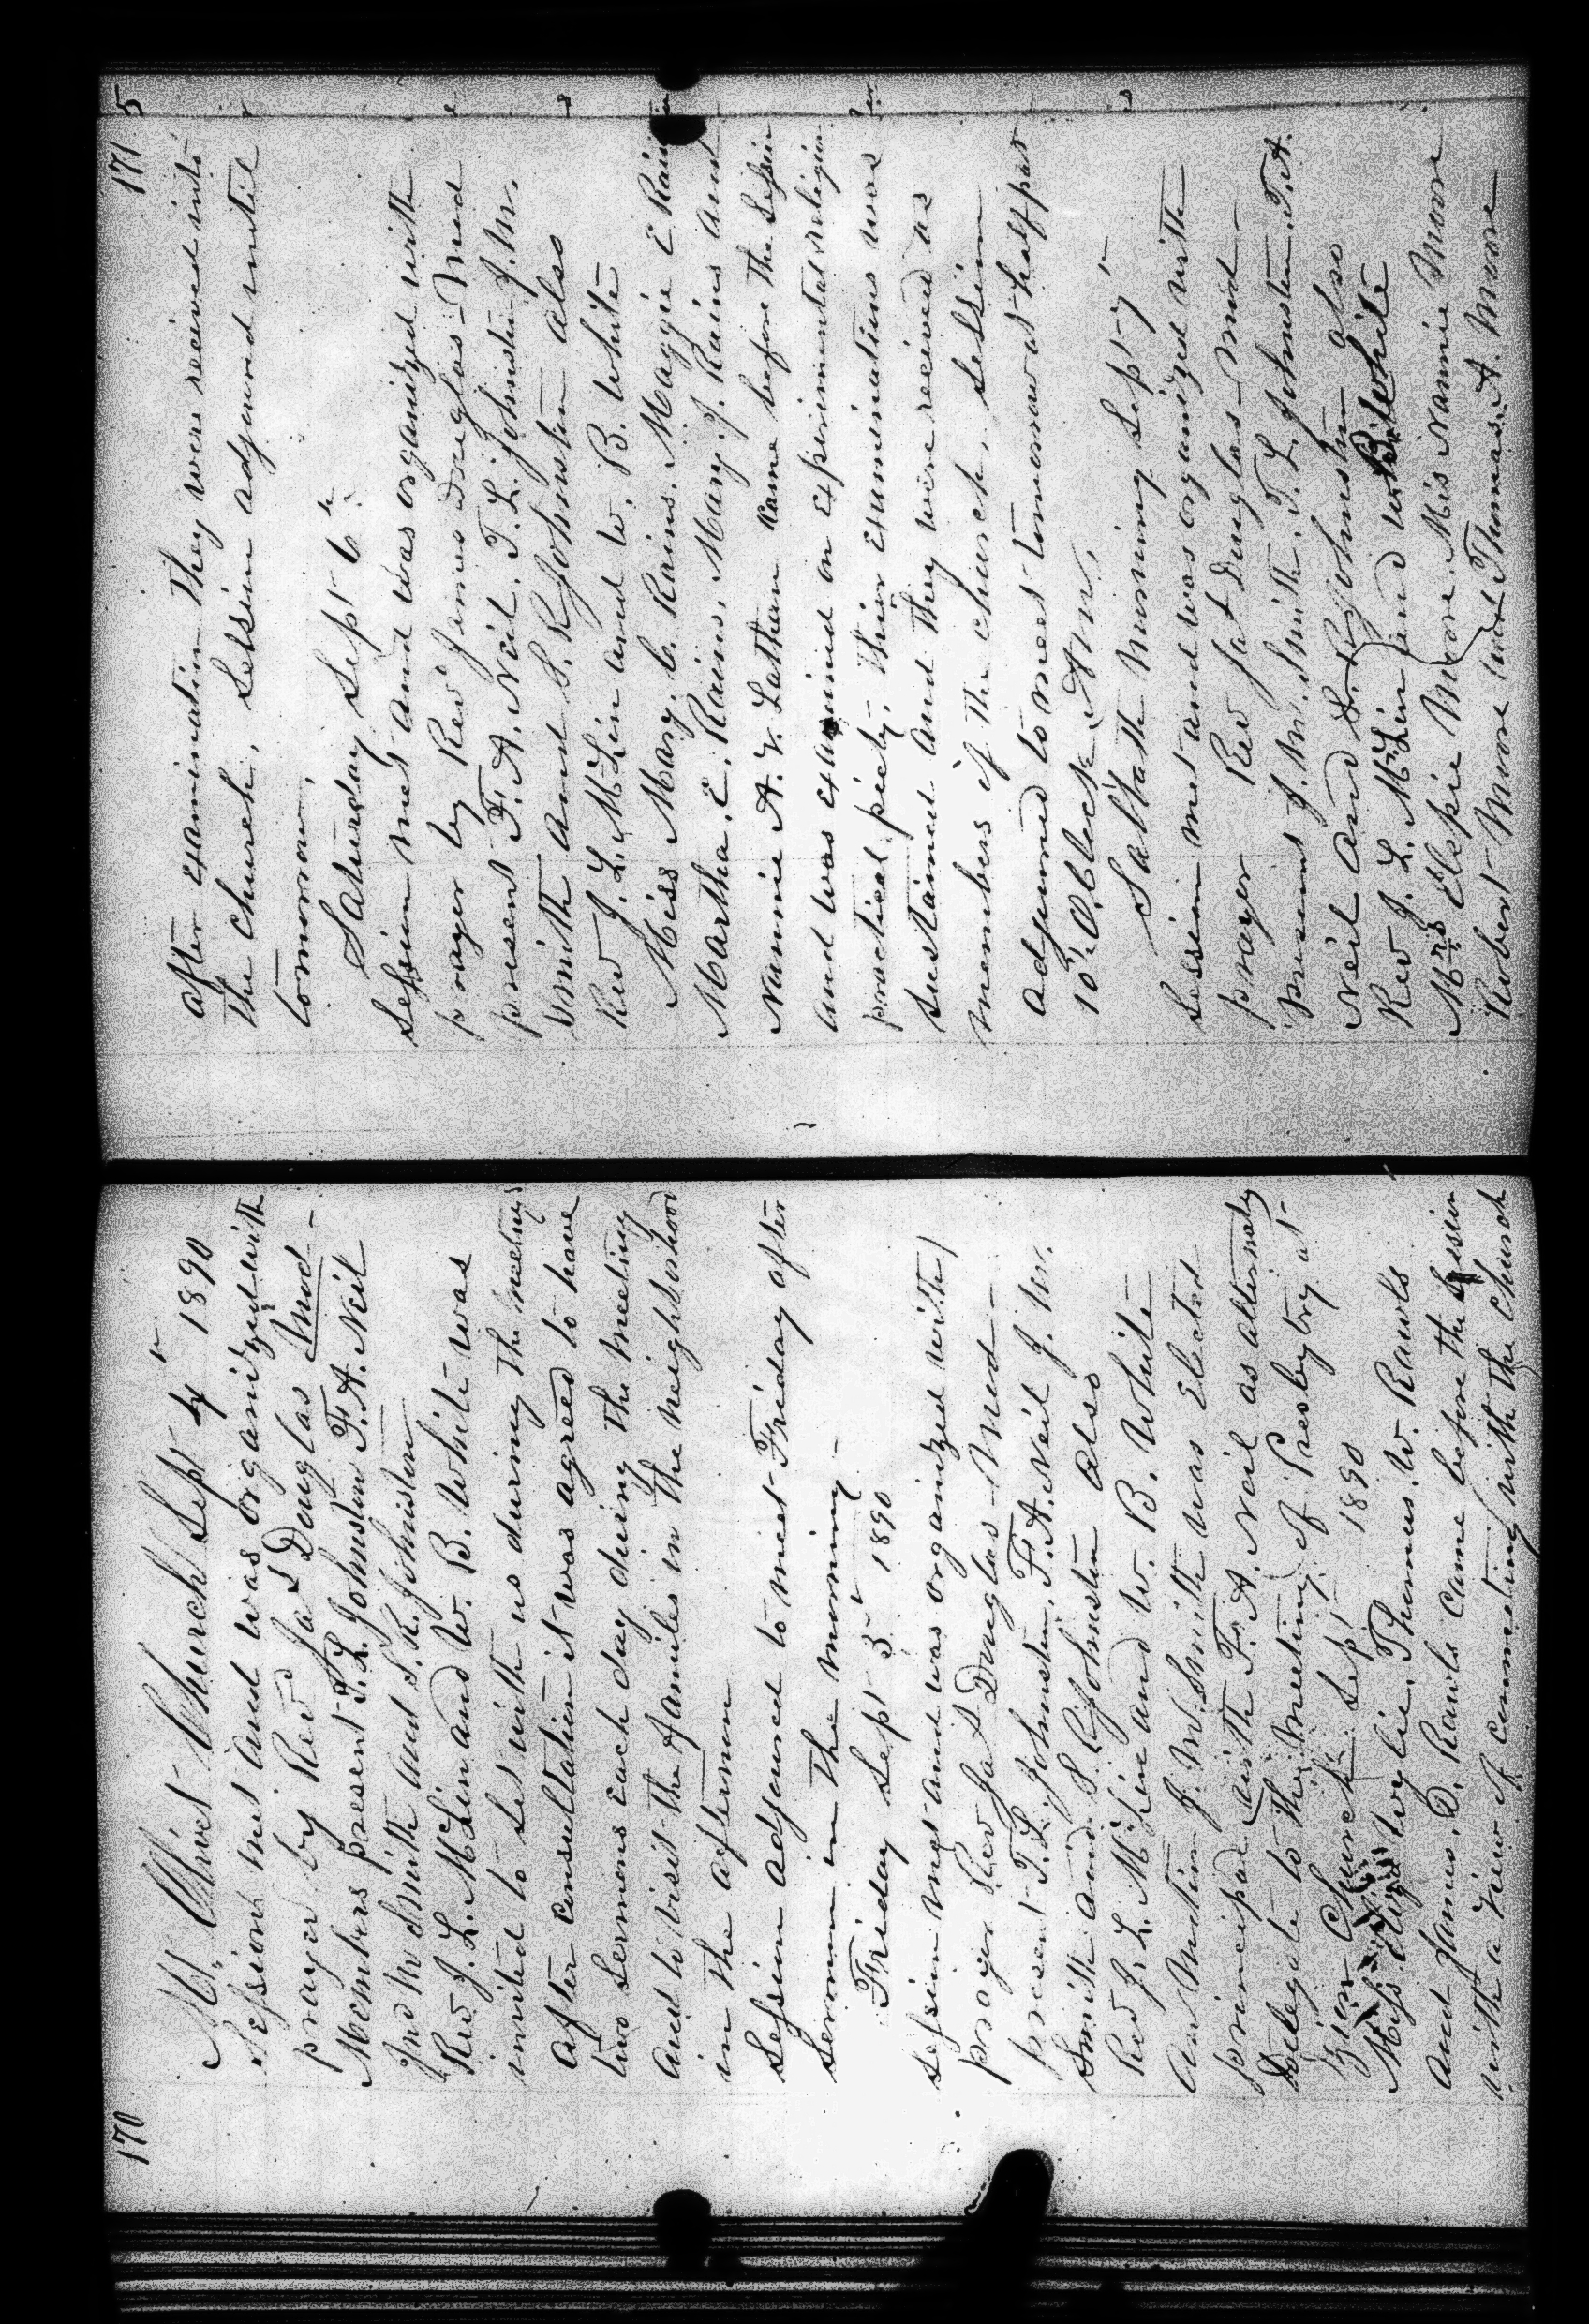 170
Mt. Olivet Church Sept 4" 1890
Session met and was organized with
prayer by Revd Jas Douglas Mod -
Members present T. L. Johnston F. A. Neil
Jno M Smith and S. R. Johnston
Rev J. L. McLin and W. B. White was
invited to set with us during the meeting
After consultation it was agreed to have
two sermons each day during the meeting
and to visit the families in the neighborhood
in the afternoon
Session adjourned to meet Friday after
sermon in the morning -
Friday Sept 5" 1890
Session met and was organized with
prayer Rev Jas Douglas Mod -
present T. L. Johnston, F. A. Neil J. M.
Smith and S. R. Johnston also
Rev J. L. McLin and W. B. White
On Motion J. M. Smith was Elected
principal with F. A. Neil as alternate
Delegate to the meeting of Presbytry at
Zion Church Sept 1890
Wylie, Thomas. W. Rawls
and James. D. Rawls came before the Session
with a view of connecting with the Church
171
after examination they were received into
the church. Session adjourned until
tomorrow,
Saturday Sept 6"
Session met and was organized with
prayer by Rev James Douglas - Mod
present F. A. Neil. T. L. Johnston J. M.
Smith and S. R. Johnston also
Rev J. L. McLin and W. B. White
Miss Mary. C. Rains. Maggie E Rains
Martha. E. Rains, Mary. J. Rains and
Nannie A. Latham came before the Session
and was examined on experimental religion
practical piety. Thier examinations was
sustained and they were received as
members of the church, session
adjourned to meet tomorrow at half past
10" Oclock A M,
Sabbath morning Sept 7"
Session met and was organized with
prayer Rev Jas Douglas - Mod -
present J. M. Smith. T. L. Johnston. F. A.
Neil and S. R. Johnston also
Rev J. L. McLin and W. B. White
Mrs Elspie Moore. Mis Nannie Moore
Robert Moore and Thomas. A. Moore